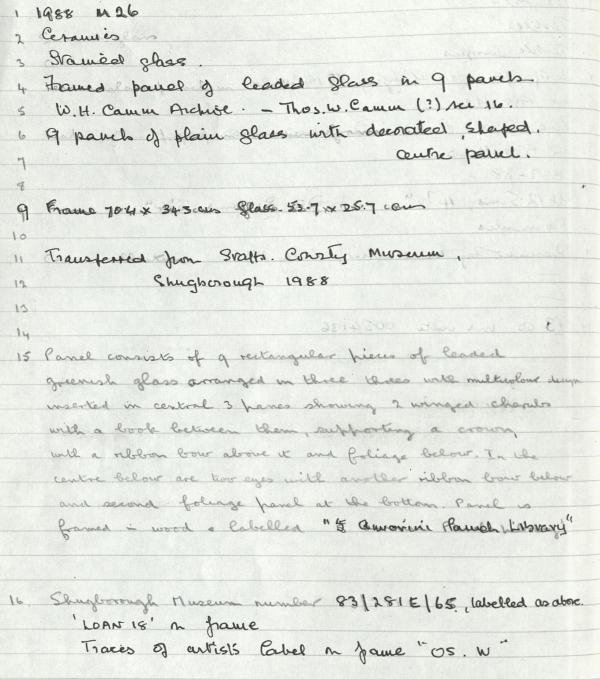 1 1988 M26
2 Ceramics
3 Stained glass.
4 Framed panel of leaded glass in 9 panels
5 W.H. Camm Archive. - Thos. W. Camm (?) see 16.
6 9 panels of plain glass with decorated, shaped.
7 centre panel.
8
9 Frame 70.4 x 34.3 cms Glass. 53.7 x 25.7 cms
10
11 Transferred from Staffs. County Museum,
12 Shugborough 1988
13
14
15 Panel consists of 9 rectangular pieces of leaded
greenish glass arranged in three threes with multicolour design
inserted in central 3 panes showing 2 winged cherubs
with a book between them, supporting a crown,
with a ribbon bow above it and foliage below. In the
centre below are two eyes with another ribbon bow below
and second foliage panel at the bottom. Panel is
framed in wood & labelled "Library"
16. Shugborough Museum number 83/281E/65, labelled as above.
'LOAN 18' on frame
Traces of artist's label on frame "OS. W"